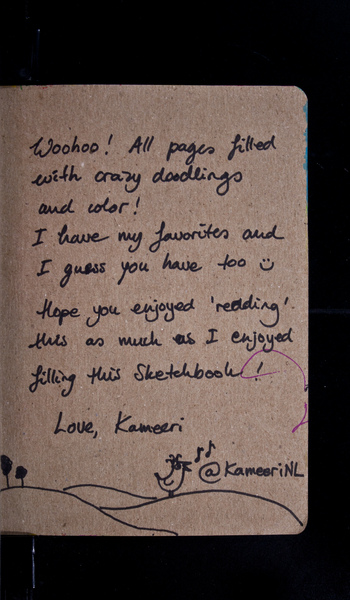 Woohoo! All pages filled
with crazy doodlings
and color!
I have my favorites and
I guess you have too ☺
Hope you enjoyed 'reading'
this as much as I enjoyed
filling this Sketchbook!
Love, Kameeri
@KameeriNL